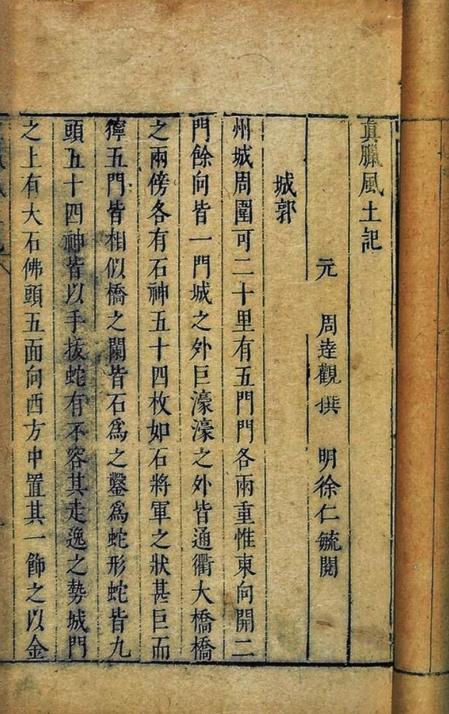 真臘風土記
元 周達觀撰 明徐仁毓閱
城郭
州城周圍可二十里有五門門各兩重惟東向開二
門餘向皆一門城之外巨濠濠之外皆通衢大橋橋
之兩傍各有石神五十四枚如石將軍之狀甚巨而
獰五門皆相似橋之闌皆石爲之鑿爲蛇形蛇皆九
頭五十四神皆以手拔蛇有不容其走逸之勢城門
之上有大石佛頭五面向西方中置其一飾之以金